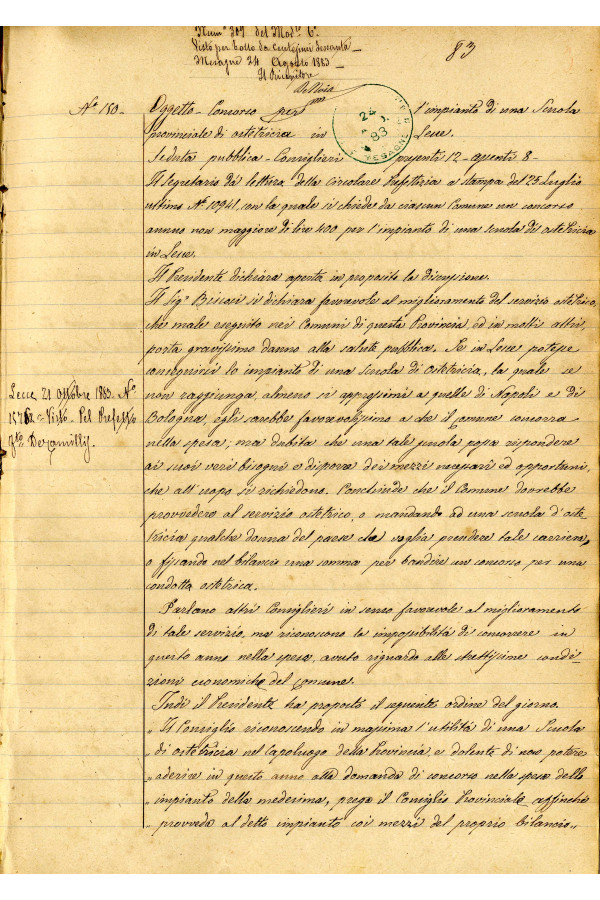 Num° 307 del Mod° 6°
Visto per bollo da centesimi sessanta
Mesagne 24 Agosto 1883
Il Ricevitore
83
N° 180 Oggetto - Concorso per l'impianto di una Scuola
24
83
MESAGNE
provinciale di ostetricia in Lecce.
Seduta pubblica - Consiglieri presenti 12 - assenti 8 -
Il Segretario dà lettura della circolare Prefettizia a stampa del 25 Luglio
ultimo N° 10941, con la quale si chiede da ciascun Comune un concorso
annuo non maggiore di lire 400 per l'impianto di una scuola di ostetricia
in Lecce.
Il Presidente dichiara aperta in proposito la discussione.
Il Sig. si dichiara favorevole al miglioramento del servizio ostetrico,
che male eseguito nei Comuni di questa Provincia, ed in molti altri,
porta gravissimo danno alla salute pubblica. Se in Lecce potesse
conseguirsi lo impianto di una Scuola di Ostetricia, la quale se
non raggiunga, almeno si approssimi a quelle di Napoli e di
Bologna, egli sarebbe favorevolissimo a che il Comune concorra
nella spesa; ma dubita che una tale scuola possa rispondere
ai suoi veri bisogni e disporre dei mezzi necessari ed opportuni,
che all'uopo si richiedono. Conchiude che il Comune dovrebbe
provvedere al servizio ostetrico, o mandando ad una scuola d'oste
tricia qualche donna del paese che voglia prendere tale carriera,
o fissando nel bilancio una somma per bandire un concorso per una
condotta ostetrica.
Parlano altri Consiglieri in senso favorevole al miglioramento
di tale servizio, ma riconoscono la impossibilità di concorrere in
questo anno nella spesa, avuto riguardo alle strettissime condi
zioni economiche del comune.
Indi il Presidente ha proposto il seguente ordine del giorno.
„ Il Consiglio riconoscendo in massima l'utilità di una Scuola
„ di ostetricia nel Capoluogo della Provincia, e dolente di non potere
„ aderire in questo anno alla domanda di concorso nella spesa dello
„ impianto della medesima, prega il Consiglio Provinciale affinchè
„ provveda al detto impianto coi mezzi del proprio bilancio„
Lecce 21 Ottobre 1883. N°
Visto - Pel Prefetto